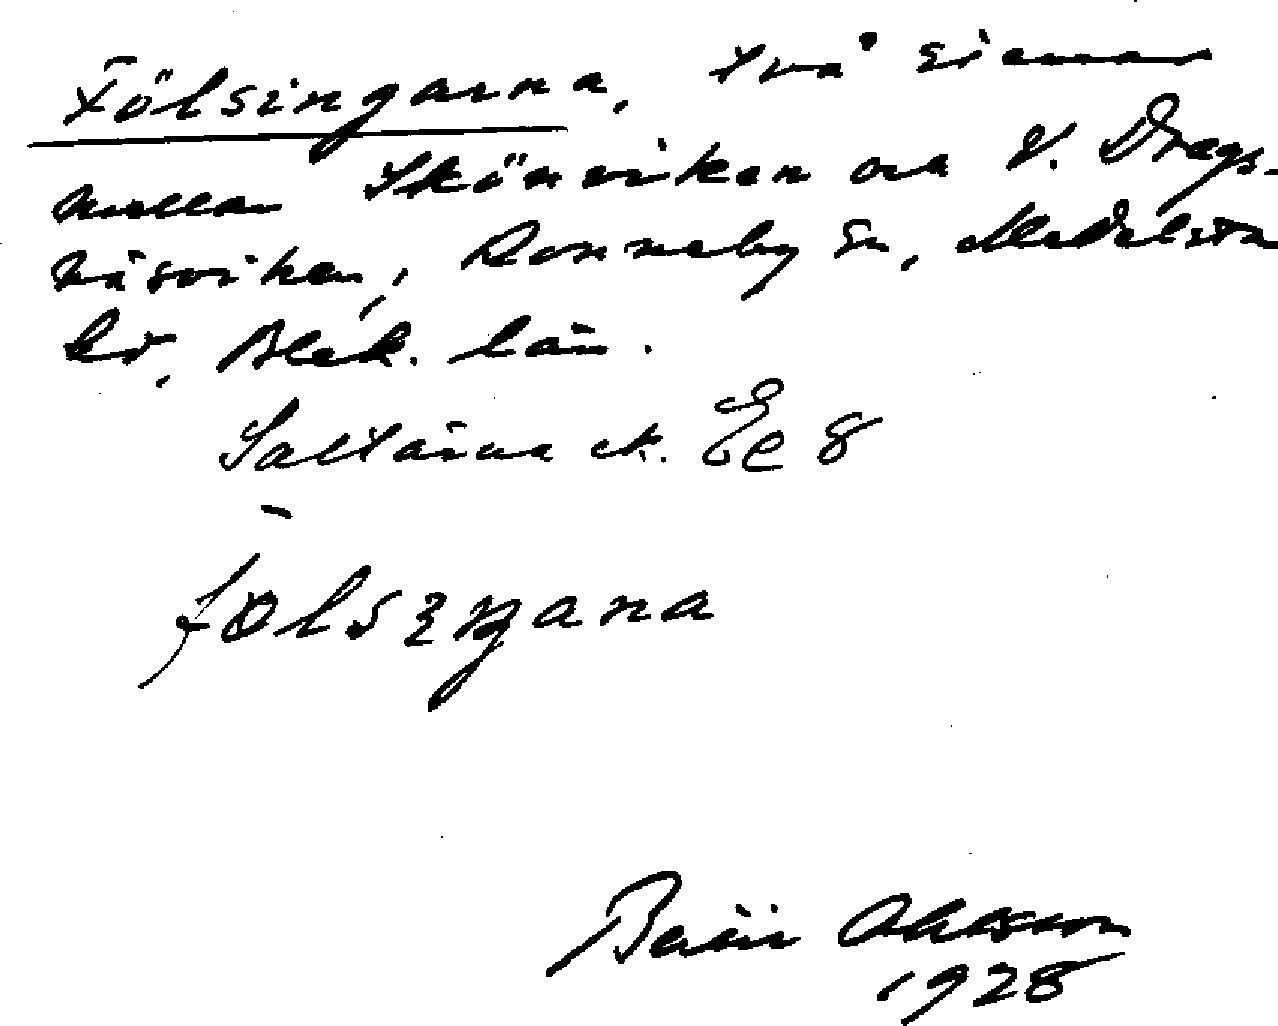 Fölsingarna, två stenar
mellan Skönviken och V. Dragsnäsviken, Ronneby sn, Medelsta
hd, Blek. län.
Saltärna ek. Ec 8
fölsɩŋana
Berit Ohlsson
1928